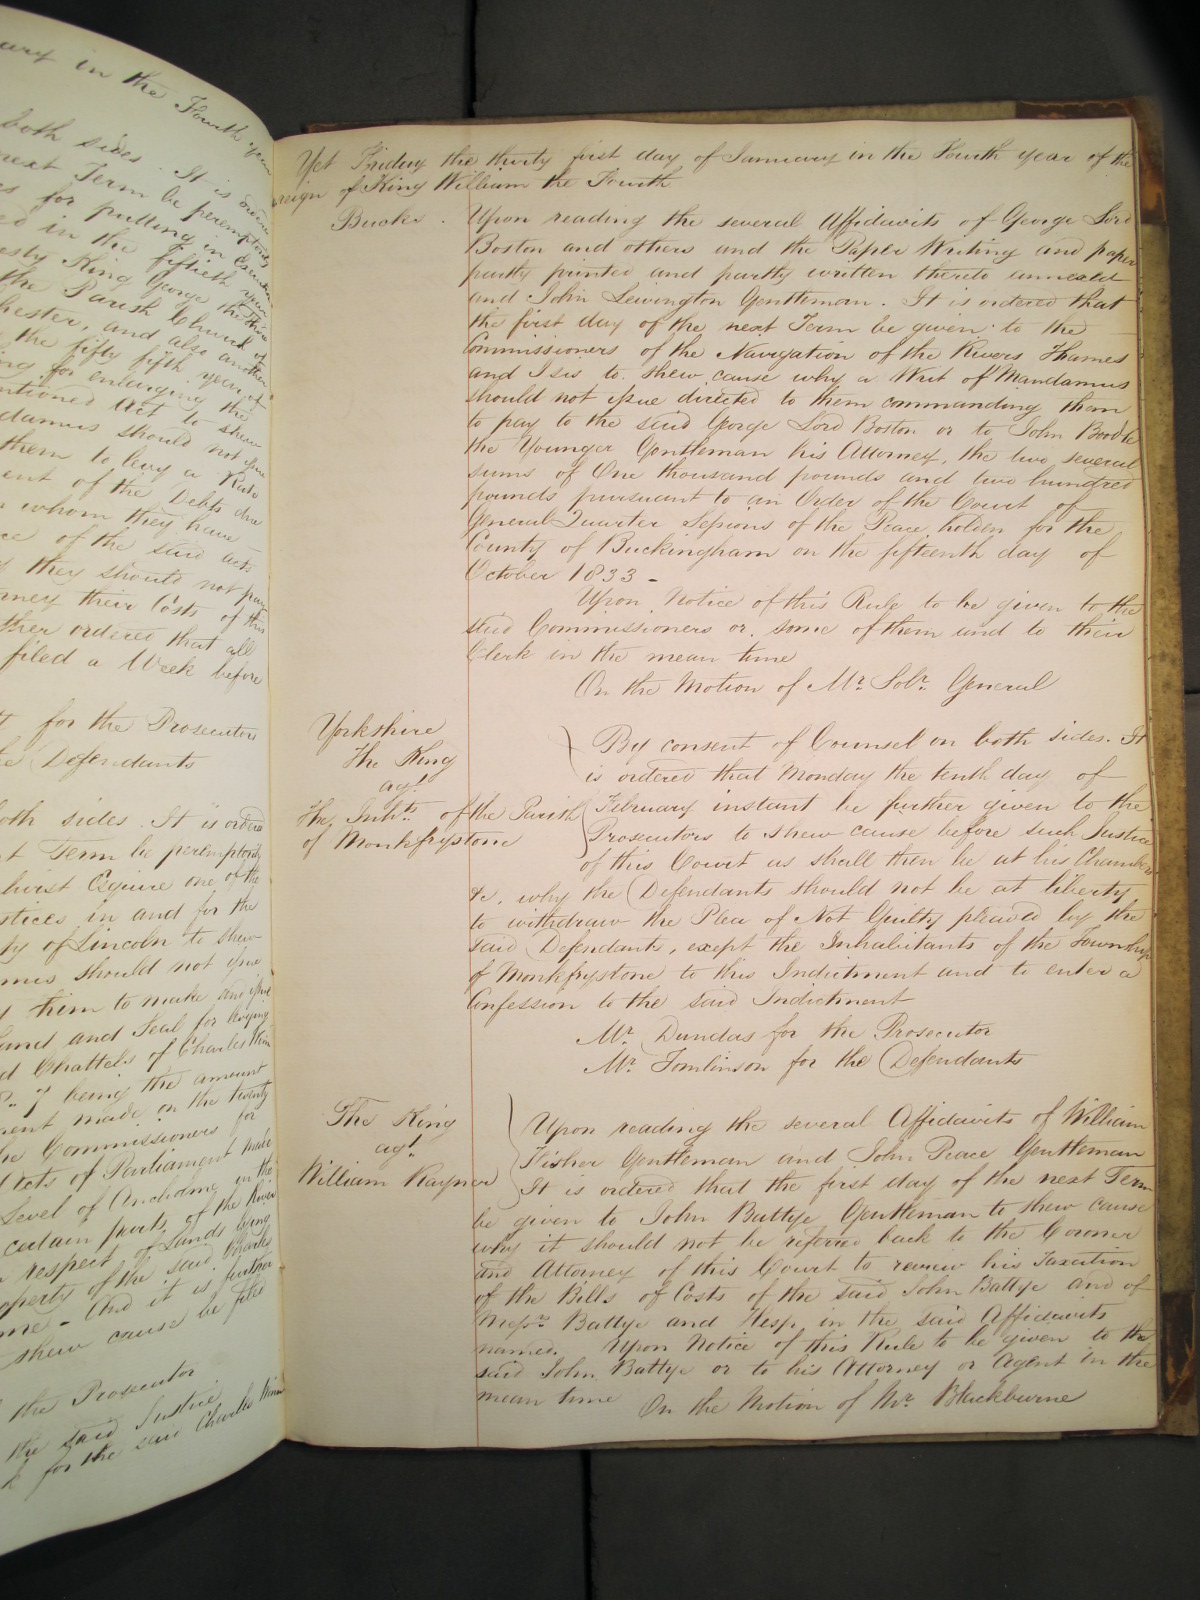 ary in the Fourth year
both sides. It is ordered
next Term be peremptorily
for putting in Execution
ed in the fiftieth year
esty King George the third
the Parish Church of
hester, and also another
the fifty fifth year of
ing for enlarging the
ntioned Act to shew
damus should not issue
them to levy a Rate
ent of the Debts due
whom they have
ce of the said acts
they should not pay
rney their Costs of this
ther ordered that all
filed a Week before
for the Prosecutors
Defendants
oth sides. It is ordered
Term be peremptorily
hrist Esquire one of the
stices in and for the
ty of Lincoln to shew
mus should not issue
them to make and issue
and and Seal for levying
d Chattels of Charles Winn
7 being the amount
ment made on the twenty
he Commissioners for
Acts of Parliament made
Level of Ancholme in the
certain parts of the River
respect of Lands lying
operty of the said Charles
me - And it is further
shew cause be filed
the Prosecutor
the said Justice
for the said Charles Winn
Yet Friday the thirty first day of January in the Fourth year of the
reign of King William the Fourth
Bucks. Upon reading the several Affidavits of George Lord
Boston and others and the Paper Writing and paper
partly printed and partly written thereto annexed
and John Lewington Gentleman. It is ordered that
the first day of the next Term be given to the
Commissioners of the Navigation of the Rivers Thames
and Isis to shew cause why a Writ of Mandamus
should not issue directed to them commanding them
to pay to the said George Lord Boston or to John Boodle
the Younger Gentleman his Attorney, the two several
sums of One thousand pounds and two hundred
pounds pursuant to an Order of the Court of
General Quarter Sessions of the Peace holden for the
County of Buckingham on the fifteenth day of
October 1833 -
Upon Notice of this Rule to be given to the
said Commissioners or some of them and to their
Clerk in the mean time
On the Motion of Mr. Solr. General
Yorkshire
The King
agt.
The Inhts. of the Parish
of Monkfrystone
By consent of Counsel on both sides. It
is ordered that Monday the tenth day of
February instant be further given to the
Prosecutors to shew cause before such Justice
of this Court as shall then be at his Chambers
&c, why the Defendants should not be at liberty
to withdraw the Plea of Not Guilty pleaded by the
said Defendants, except the Inhabitants of the Township
of Monkfrystone to this Indictment and to enter a
Confession to the said Indictment
Mr. Dundas for the Prosecutor
Mr. Tomlinson for the Defendants
The King
agt.
William Rayner
Upon reading the several Affidavits of William
Fisher Gentleman and John Peace Gentleman
It is ordered that the first day of the next Term
be given to John Battye Gentleman to shew cause
why it should not be referred back to the Coroner
and Attorney of this Court to review his Taxation
of the Bills of Costs of the said John Battye and of
Messrs. Battye and Hesp in the said Affidavits
named. Upon Notice of this Rule to be given to the
said John Battye or to his Attorney or Agent in the
mean time On the Motion of Mr. Blackburne